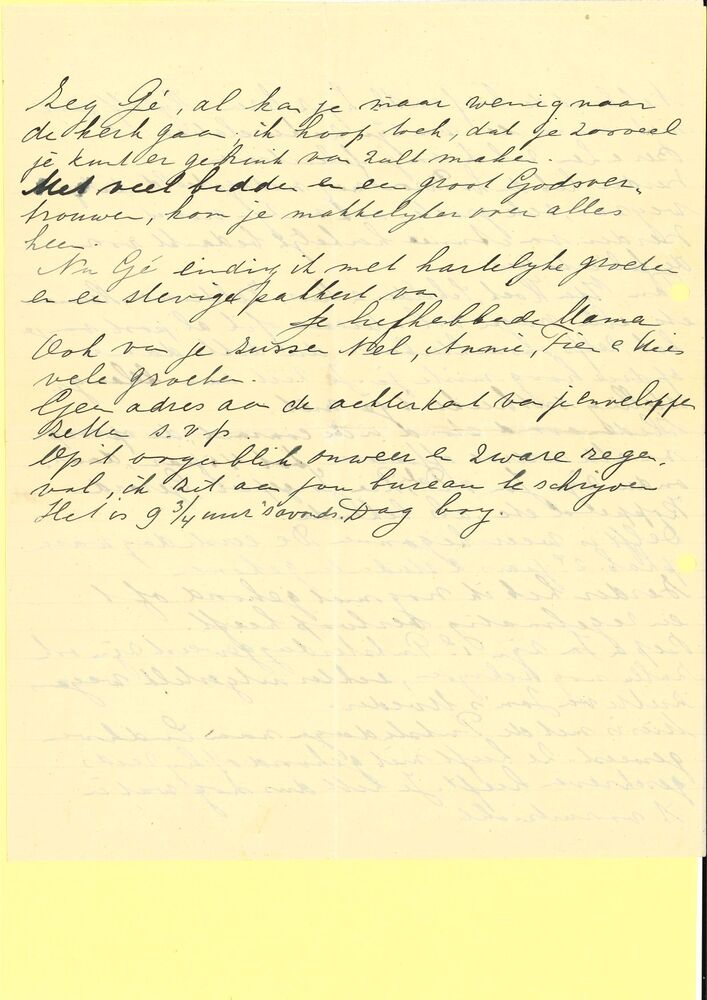 Zeg Gé, al kan je maar weinig naar
de kerk gaan, ik hoop toch, dat je zooveel
je kunt er gebruik van zult maken.
Met veel bidden en een groot Godsver-
trouwen, kom je makkelijker over alles
heen.
Nu Gé eindig ik met hartelijke groeten
en een stevige pakkert van
Je liefhebbende Mama
Ook van je zussen Nel, Annie, Fien en Mies
vele groeten.
Geen adres aan de achterkant van je enveloppen
zetten s.v.p.
Op 't oogenblik onweer en zware regen-
val, ik zit aan jou bureau te schrijven
Het is 9 3/4 uur 's avonds. Dag boy.